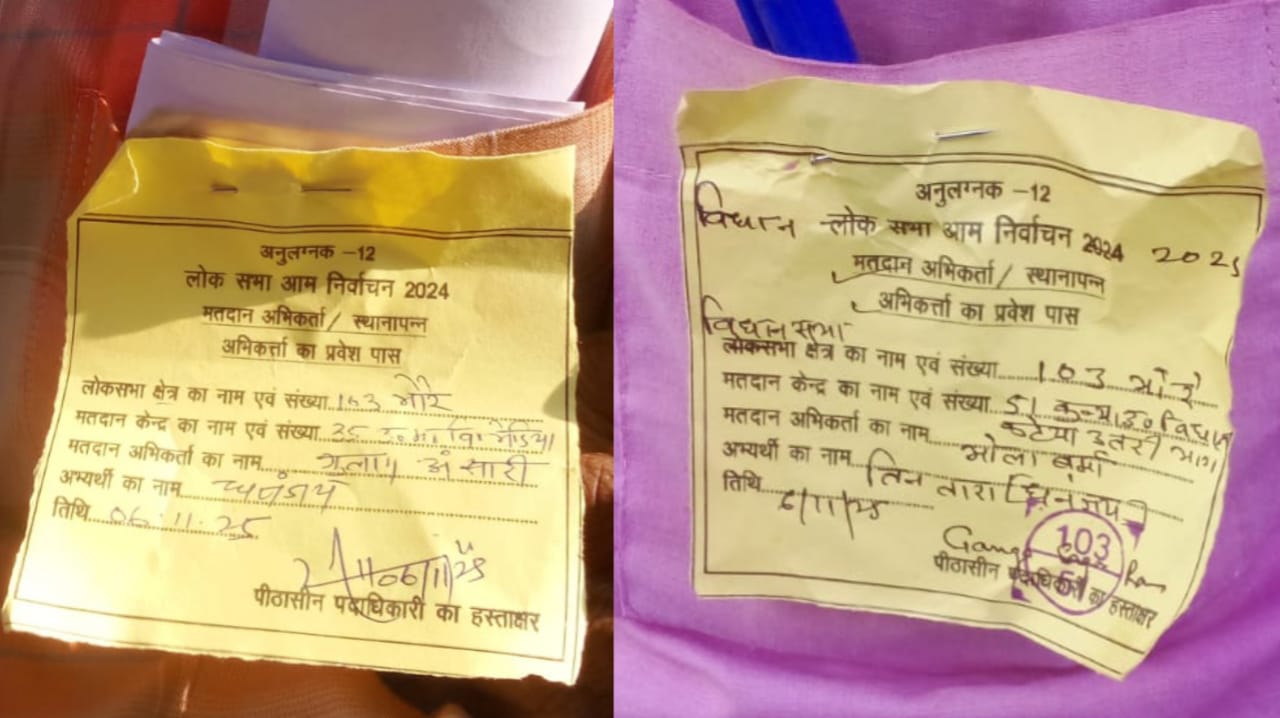 अनुलग्नक -12
लोक सभा आम निर्वाचन 2024
मतदान अभिकर्ता/ स्थानापन्न
अभिकर्त्ता का प्रवेश पास
लोकसभा क्षेत्र का नाम एवं संख्या 103 भोरे
मतदान केन्द्र का नाम एवं संख्या 35
मतदान अभिकर्ता का नाम अंसारी
अभ्यर्थी का नाम
तिथि 06.11.25
06/11/25
पीठासीन पदाधिकारी का हस्ताक्षर
अनुलग्नक -12
विधान लोक सभा आम निर्वाचन 2024 2025
मतदान अभिकर्ता/ स्थानापन्न
अभिकर्त्ता का प्रवेश पास
विधान सभा
लोकसभा क्षेत्र का नाम एवं संख्या 103 भोरे
मतदान केन्द्र का नाम एवं संख्या 51
कटेया उतरी भाग
मतदान अभिकर्ता का नाम भोला वर्मा
अभ्यर्थी का नाम तिन तारा धनंजय
तिथि 6/11/25
103
51
पीठासीन पदाधिकारी का हस्ताक्षर